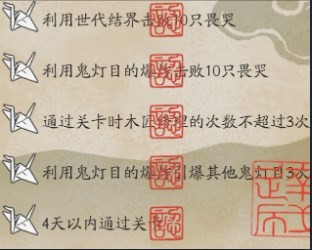 利用世代结界击败10只畏哭
利用鬼灯目的爆炸击败10只畏哭
通过关卡时木匠修理的次数不超过3次
利用鬼灯目的爆炸引爆其他鬼灯目3次
4天以内通过关卡